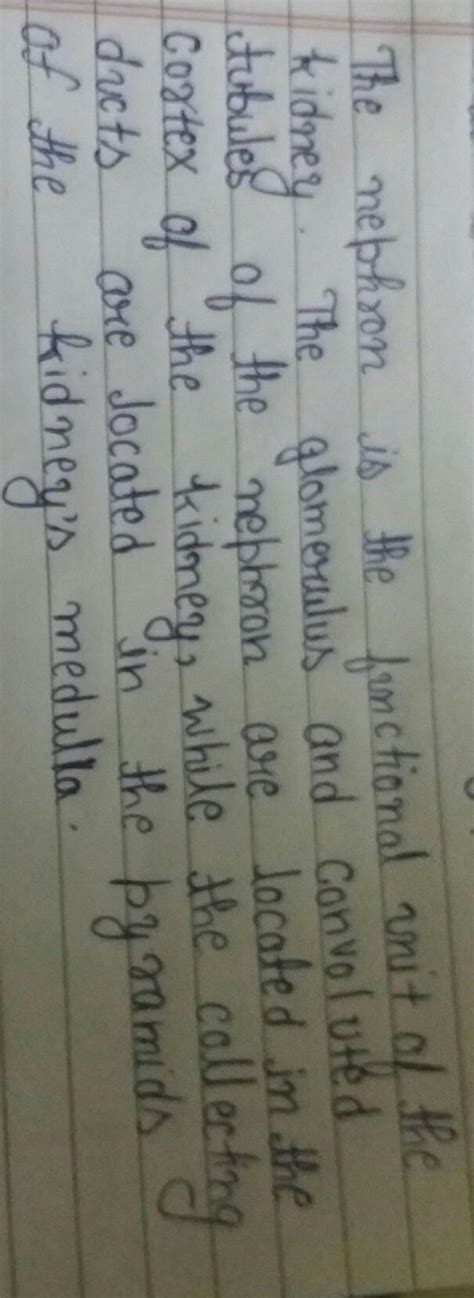 The nephron is the functional unit of the
kidney. The glomerulus and convoluted
tubules of the nephron are located in the
cortex of the kidney, while the callecting
ducts are located in the pyramids
of the kidney's medulla.